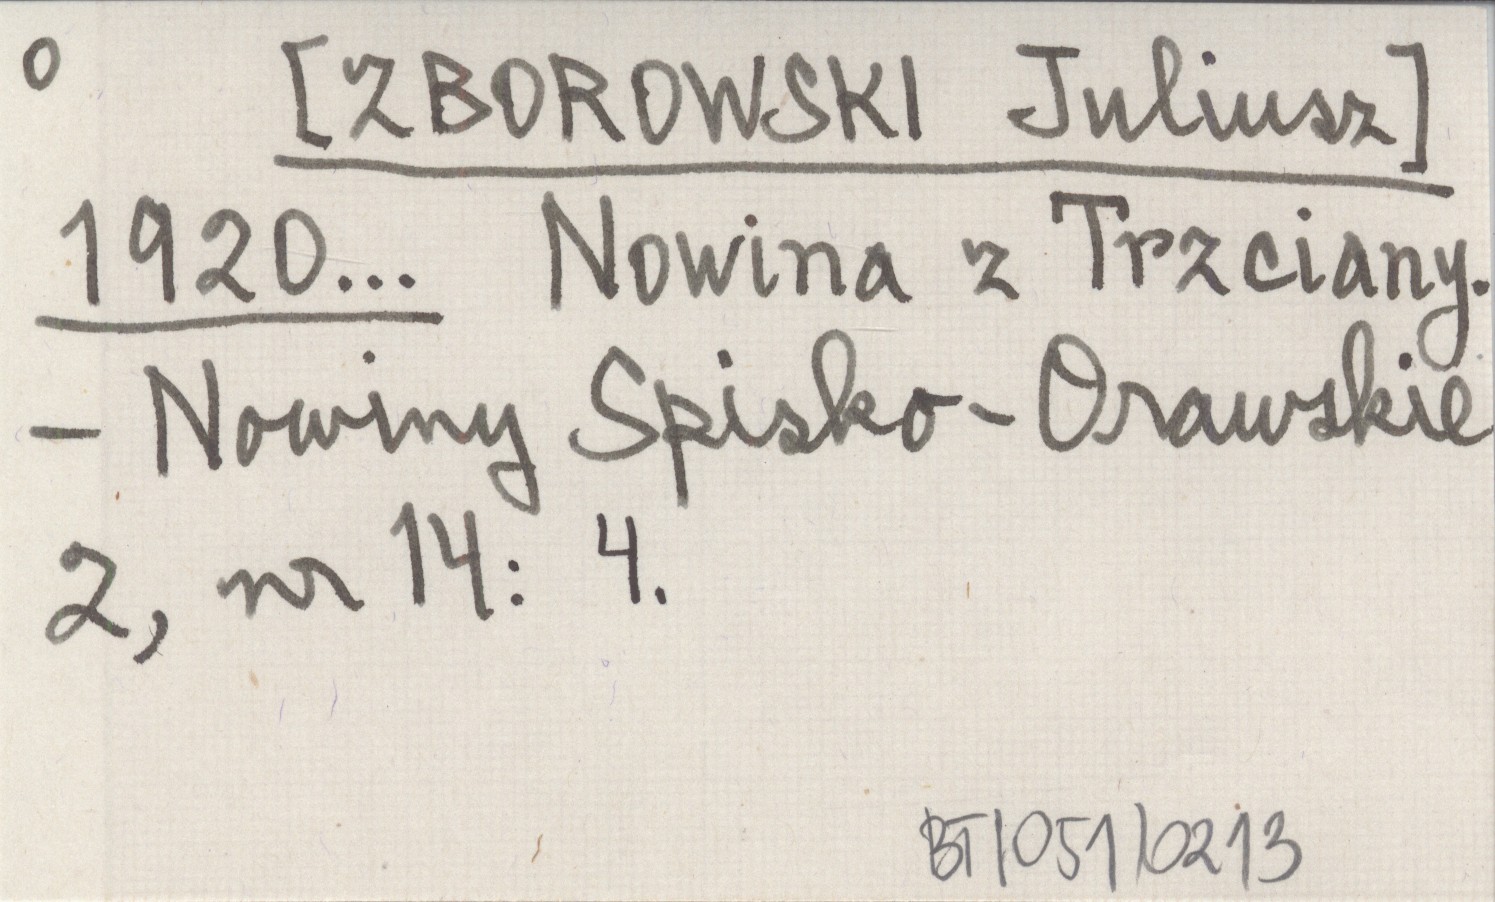 o [ZBOROWSKI Juliusz]
1920... Nowina z Trzciany.
- Nowiny Spisko-Orawskie
2, nr 14: 4.
BT/051/0213